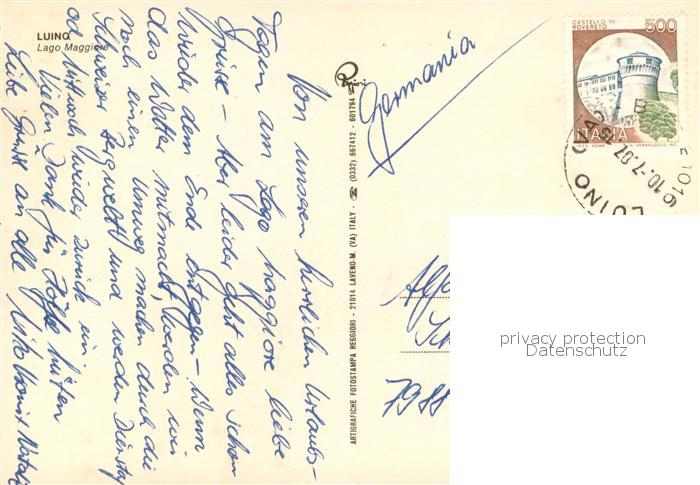 LUINO
Lago Maggiore
Von unseren herrlichen Urlaubs-
tagen am Lago Maggiore liebe
Grüße – Aber leider geht alles schon
wieder dem Ende entgegen – Wenn
das Wetter mitmacht, werden wir
noch einen Umweg machen durch die
Schweizer Bergwelt und werden Dienstag
od. Mittwoch wieder zurück sein
Vielen Dank für Höfle hüten
Liebe Grüße an alle
Reggiori
ARTIGRAFICHE FOTOSTAMPA REGGIORI - 21014 LAVENO-M. (VA) ITALY - ☎ (0332) 667412 - 601794
Germania
CASTELLO DI
ROVERETO
500
ITALIA
LUINO
10.-7.87
7988
privacy protection
Datenschutz